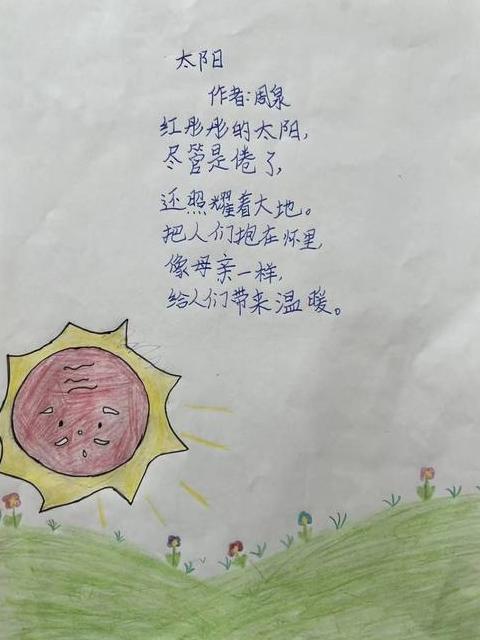 太阳
作者:周泉
红彤彤的太阳,
尽管是倦了,
还照耀着大地。
把人们抱在怀里,
像母亲一样,
给人们带来温暖。